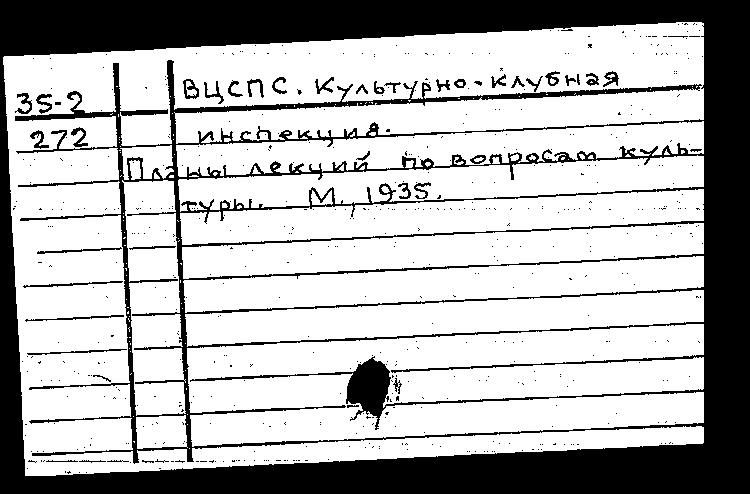 35-2 ВЦСПС. Культурно-клубная
272 инспекция.
Планы лекций по вопросам куль-
туры. М., 1935.